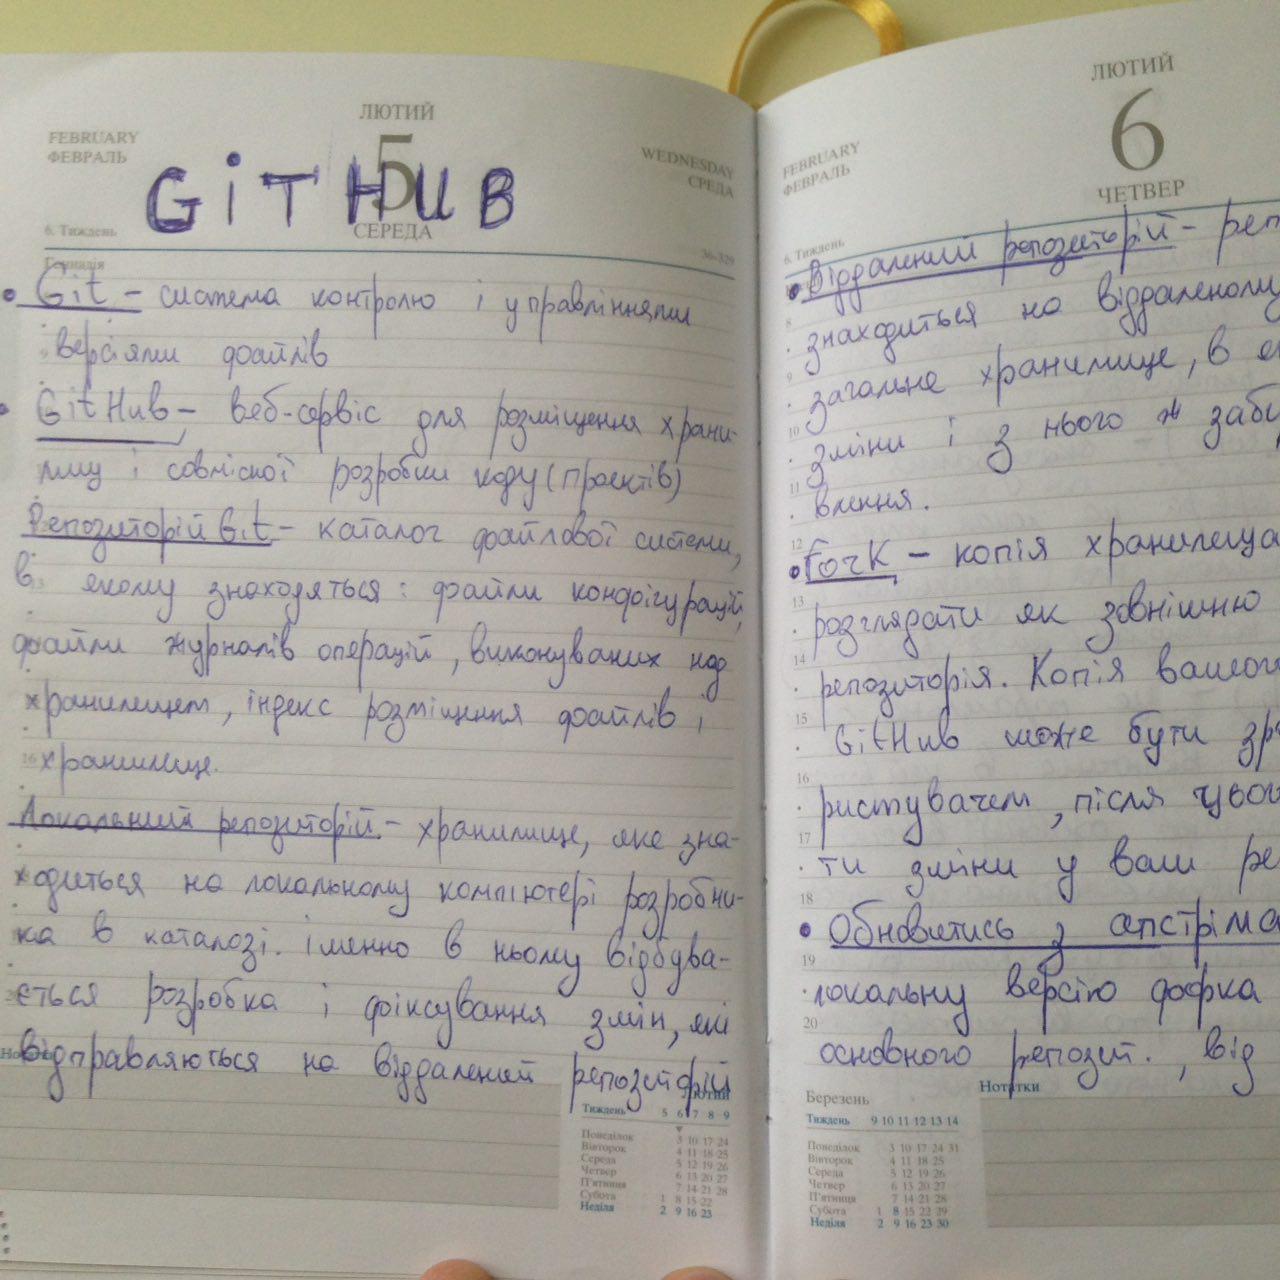 ЛЮТИЙ
FEBRUARY
ФЕВРАЛЬ
5
WEDNESDAY
СРЕДА
GiTHUB
6. Тиждень
СЕРЕДА
36-329
Геннадія
Git - система контролю і управліннями
версіями файлів
GitHub - веб-сервіс для розміщення храни-
лищ і совмісної розробки коду (проєктів)
Репозиторій Git - каталог файлової системи,
в якому знаходяться: файли конфігурацій,
файли журналів операцій, виконуваних над
хранилищем, індекс розміщення файлів і
16 хранилище.
Локальний репозиторій - хранилище, яке зна-
ходиться на локальному компіютері розробни-
ка в каталозі. іменно в ньому відбува-
ється розробка і фіксування змін, які
відправляються на віддалений репозиторій
Лютий
Тиждень 5 6 7 8 9
Понеділок 3 10 17 24
Вівторок 4 11 18 25
Середа 5 12 19 26
Четвер 6 13 20 27
П'ятниця 7 14 21 28
Субота 1 8 15 22
Неділя 2 9 16 23
ЛЮТИЙ
FEBRUARY
ФЕВРАЛЬ
6
ЧЕТВЕР
6. Тиждень
Віддалений репозиторій - реп
8
знаходиться на віддаленому
9
загальне хранилище, в
10
зміни і з нього ж заби
11
влення.
12
Fork - копія хранилища
13
розглядати як зовнішню
14
репозиторія. Копія вашого
15
GitHub може бути зр
16
ристувачем, після цього
17
ти зміни у ваш ре
18
Обновитись з апстріма
19
локальну версію форка
20
основного репозит., від
Нотатки
Березень
Тиждень 9 10 11 12 13 14
Понеділок 3 10 17 24 31
Вівторок 4 11 18 25
Середа 5 12 19 26
Четвер 6 13 20 27
П'ятниця 7 14 21 28
Субота 1 8 15 22 29
Неділя 2 9 16 23 30